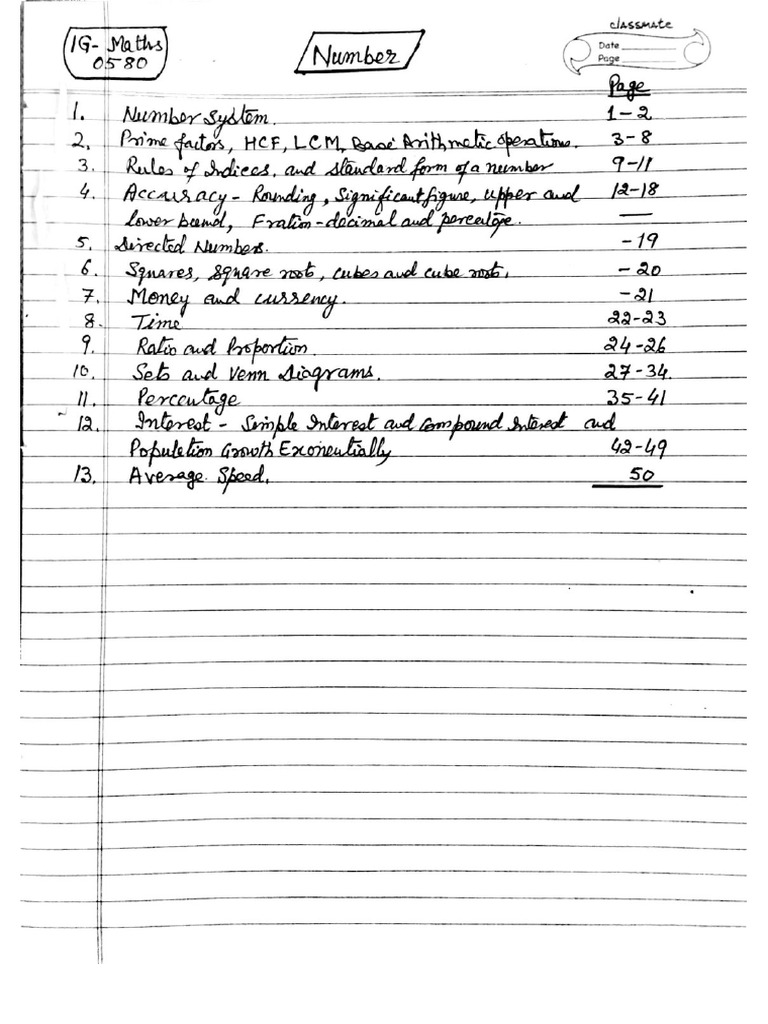 IG- Maths
0580
Number
classmate
Date
Page
Page
1. Number System. 1-2
2. Prime factors, HCF, LCM, Basic Arithmetic operations. 3-8
3. Rules of Indices, and standard form of a number 9-11
4. Accuracy - Rounding, Significant figure, upper and 12-18
lower bound, Fration-decimal and percentage. —
5. Directed Numbers. -19
6. Squares, square roots, cubes and cube roots. -20
7. Money and currency. -21
8. Time 22-23
9. Ratio and Proportion. 24-26
10. Sets and Venn Diagrams. 27-34
11. Percentage 35-41
12. Interest - Simple Interest and Compound Interest and
Population Growth Exonentially 42-49
13. Average Speed. 50